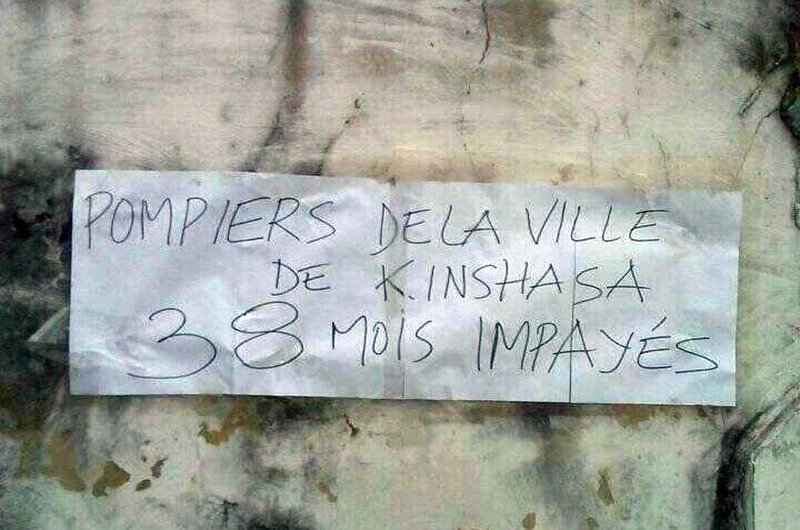 POMPIERS DE LA VILLE
DE K.INSHASA
38 MOIS IMPAYÉS